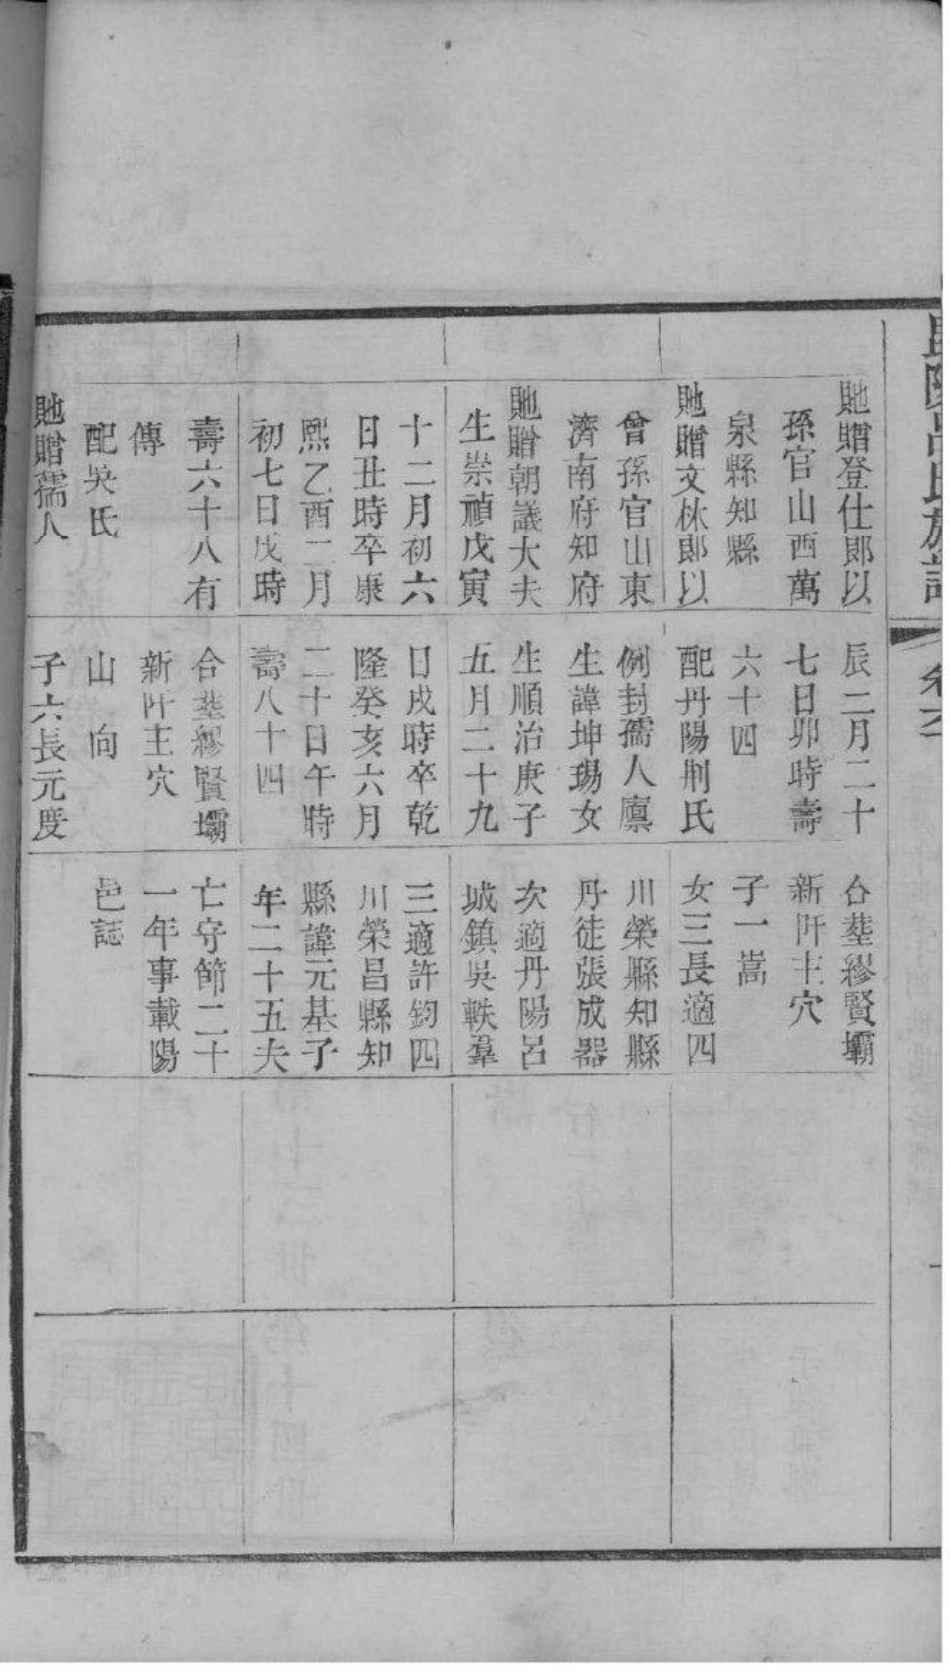 貤贈登仕郎以
孫官山西萬
泉縣知縣
貤贈文林郎以
曾孫官山東
濟南府知府
貤贈朝議大夫
生崇禎戊寅
十二月初六
日丑時卒康
熙乙酉二月
初七日戌時
壽六十八有
傳
配吳氏
貤贈孺人
辰二月二十
七日卯時壽
六十四
配丹陽荆氏
例封孺人廩
生諱坤瑒女
生順治庚子
五月二十九
日戌時卒乾
隆癸亥六月
二十日午時
壽八十四
合塟繆賢壩
新阡主穴
山向
子六長元度
合塟繆賢壩
新阡主穴
子一嵩
女三長適四
川榮縣知縣
丹徒張成器
次適丹陽呂
城鎮吳軼羣
三適許鈞四
川榮昌縣知
縣諱元基子
年二十五夫
亡守節二十
一年事載陽
邑誌